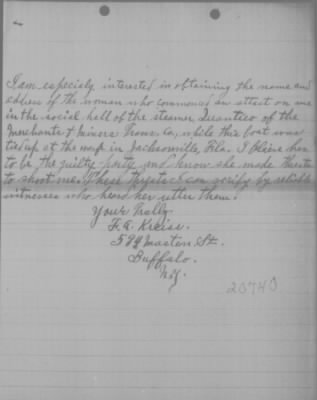 I am especialy interested in obtaining the name and
address of the woman who commenced an attact on me
in the social hall of the steamer Quantico of the
Merchants & Miners Trans. Co, while this boat was
tied up at the warf in Jacksonville, Fla. I blieve her
to be the guilty party and know she made threats
to shoot me. These threats I can verify by reliable
witnesses who heard her utter them.
Your Truly
F. A. Kreise.
599 Masten St.
Buffalo.
N.Y.
20740